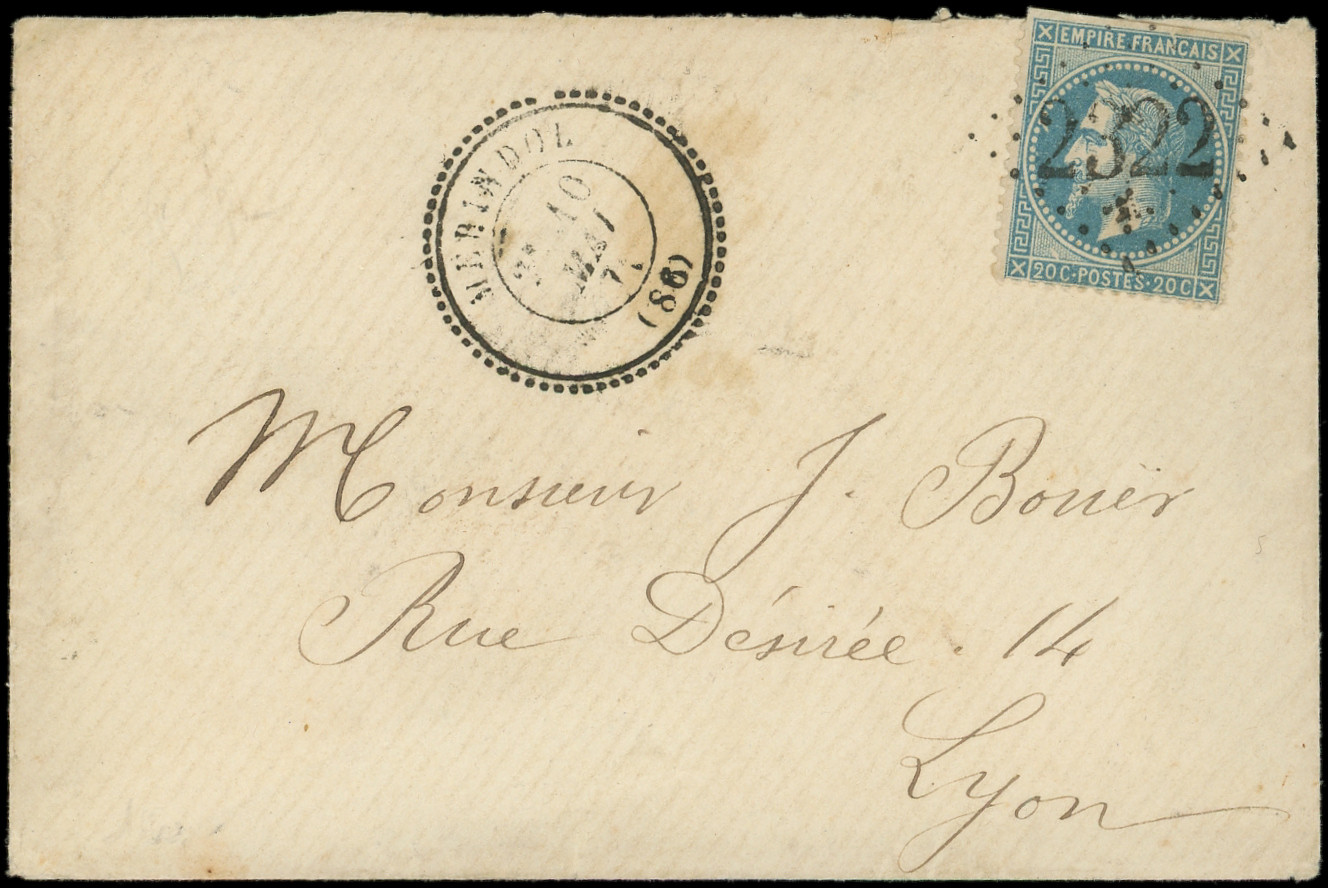 EMPIRE FRANCAIS
2322
20 C·POSTES·20 C
MERINDOL
10
MAI
(86)
Monsieur J. Bouër
Rue Désirée. 14
Lyon